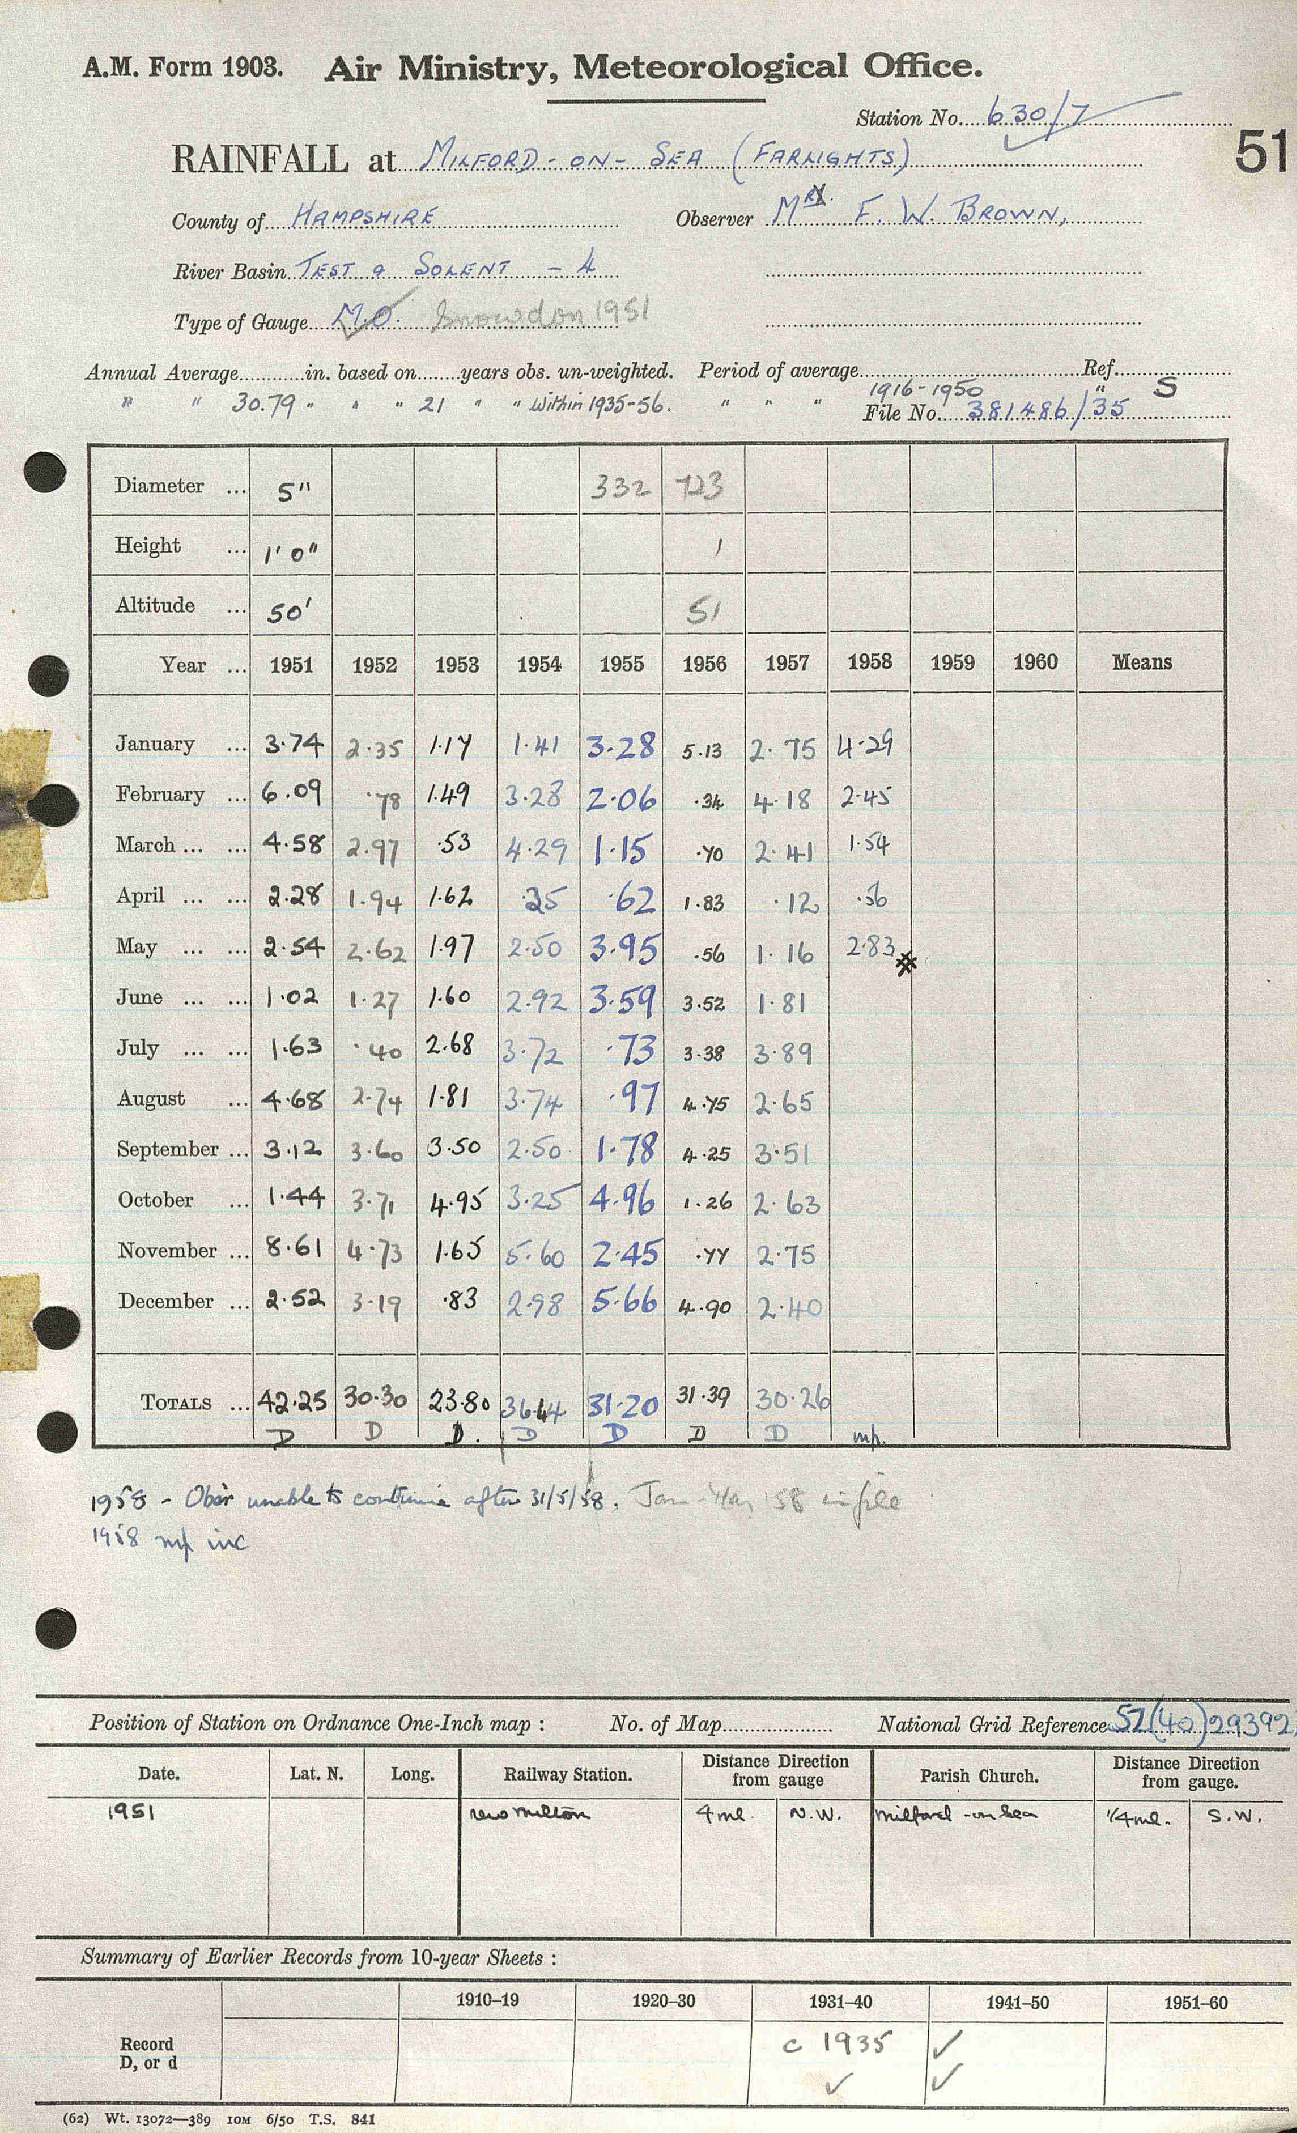 A.M. Form 1903. Air Ministry, Meteorological Office.
Station No. 630/7
51
RAINFALL at MILFORD-ON-SEA (FARLIGHTS)
County of HAMPSHIRE Observer F. W. BROWN,
River Basin TEST & SOLENT - 4
Type of Gauge M.O. Snowdon 1951
Annual Average in. based on years obs. un-weighted. Period of average Ref.
" " 30.79 " " " 21 " " within 1935-56. " " " 1916-1950 " S
File No. 381486/35
Diameter ... 5" 332 723
Height ... 1' 0" 1
Altitude ... 50' 51
Year ... 1951 1952 1953 1954 1955 1956 1957 1958 1959 1960 Means
January ... 3.74 2.35 1.17 1.41 3.28 5.13 2.75 4.29
February ... 6.09 .78 1.49 3.28 2.06 .34 4.18 2.45
March ... ... 4.58 2.97 .53 4.29 1.15 .70 2.41 1.54
April ... ... 2.28 1.94 1.62 .25 .62 1.83 .12 .56
May ... ... 2.54 2.62 1.97 2.50 3.95 .56 1.16 2.83
June ... ... 1.02 1.27 1.60 2.92 3.59 3.52 1.81
July ... ... 1.63 .40 2.68 3.72 .73 3.38 3.89
August ... 4.68 2.74 1.81 3.74 .97 4.75 2.65
September ... 3.12 3.60 3.50 2.50 1.78 4.25 3.51
October ... 1.44 3.71 4.95 3.25 4.96 1.26 2.63
November ... 8.61 4.73 1.65 5.60 2.45 .77 2.75
December ... 2.52 3.19 .83 2.98 5.66 4.90 2.40
TOTALS ... 42.25 30.30 23.80 36.44 31.20 31.39 30.26
D D D. D D D D mp.
1958 - Obsr unable to continue after 31/5/58. Jan-May 58 in file
1958 mp inc
Position of Station on Ordnance One-Inch map : No. of Map National Grid Reference SZ(40)29392
Date. Lat. N. Long. Railway Station. Distance Direction from gauge Parish Church. Distance Direction from gauge.
1951 New Milton 4 ml. N.W. Milford-on-Sea 1/4 ml. S.W.
Summary of Earlier Records from 10-year Sheets :
1910–19 1920–30 1931–40 1941–50 1951–60
Record
D, or d
c 1935
(62) Wt. 13072—389 10M 6/50 T.S. 841